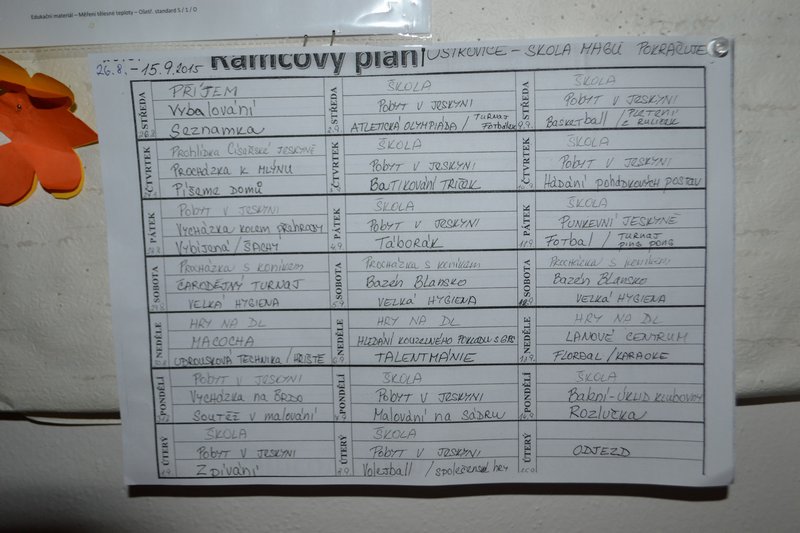 Edukační materiál – Měření tělesné teploty – Ošetř. standard S / 1 / O
26.8. - 15.9.2015 Rámcový plán OSTROVICE - ŠKOLA MAGŮ POKRAČUJE
STŘEDA
PŘÍJEM
Vybalování
Seznamka
STŘEDA
2.9.
ŠKOLA
POBYT V JESKYNI
ATLETICKÁ OLYMPIÁDA / TURNAJ FOTBÁLEK
STŘEDA
9.9.
ŠKOLA
POBYT V JESKYNI
BASKETBALL / PLETENÍ Z RULIČEK
ČTVRTEK
PROHLÍDKA CÍSAŘSKÉ JESKYNĚ
PROCHÁZKA K MLÝNU
Píšeme domů
ČTVRTEK
ŠKOLA
POBYT V JESKYNI
BATIKOVÁNÍ TRIČEK
ČTVRTEK
ŠKOLA
POBYT V JESKYNI
Hádání pohádkových postav
PÁTEK
POBYT V JESKYNI
Vycházka kolem přehrady
Vybíjená / ŠACHY
PÁTEK
4.9.
ŠKOLA
POBYT V JESKYNI
TÁBORÁK
PÁTEK
11.9.
ŠKOLA
PUNKEVNÍ JESKYNĚ
FOTBAL / TURNAJ PING PONG
SOBOTA
PROCHÁZKA S KONÍKEM
ČARODĚJNÝ TURNAJ
VELKÁ HYGIENA
SOBOTA
5.9.
PROCHÁZKA S KONÍKEM
BAZÉN BLANSKO
VELKÁ HYGIENA
SOBOTA
12.9.
PROCHÁZKA S KONÍKEM
BAZÉN BLANSKO
VELKÁ HYGIENA
NEDĚLE
HRY NA DL
MACOCHA
UBROUSKOVÁ TECHNIKA / HŘIŠTĚ
NEDĚLE
6.9.
HRY NA DL
HLEDÁNÍ KOUZELNÉHO POKLADU S GPS
TALENTMÁNIE
NEDĚLE
13.9.
HRY NA DL
LANOVÉ CENTRUM
FLORBAL / KARAOKE
PONDĚLÍ
POBYT V JESKYNI
VYCHÁZKA NA BRDO
SOUTĚŽ V malování
PONDĚLÍ
ŠKOLA
POBYT V JESKYNI
Malování na SÁDRU
PONDĚLÍ
14.9.
ŠKOLA
Balení - ÚKLID KLUBOVNY
ROZLUČKA
ÚTERÝ
ŠKOLA
POBYT V JESKYNI
ZPÍVÁNÍ
ÚTERÝ
8.9.
ŠKOLA
POBYT V JESKYNI
Volejball / společenské hry
ÚTERÝ
ODJEZD